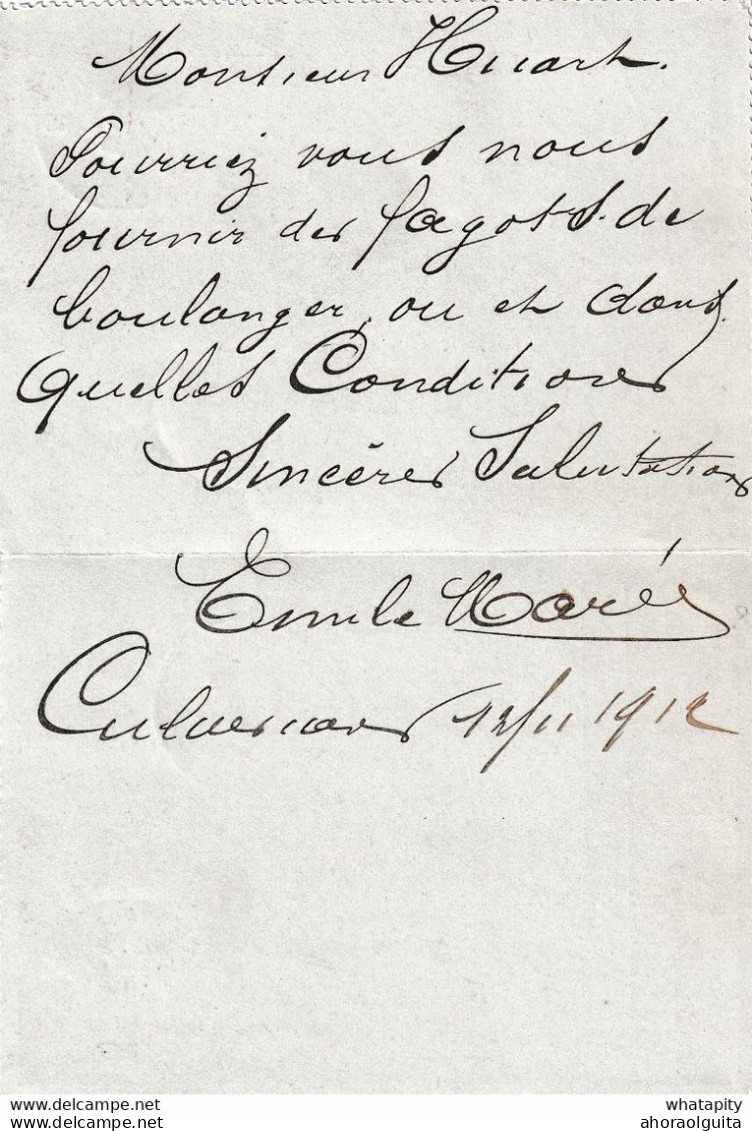 Monsieur Huart.
Pourriez vous nous
fournir des fagots de
boulanger, ou et dans
quelles Conditions
Sincères Salutations
Emile Marée
12/11 1912
delcampe.net
delcampe.net
whatapity
ahoraolguita